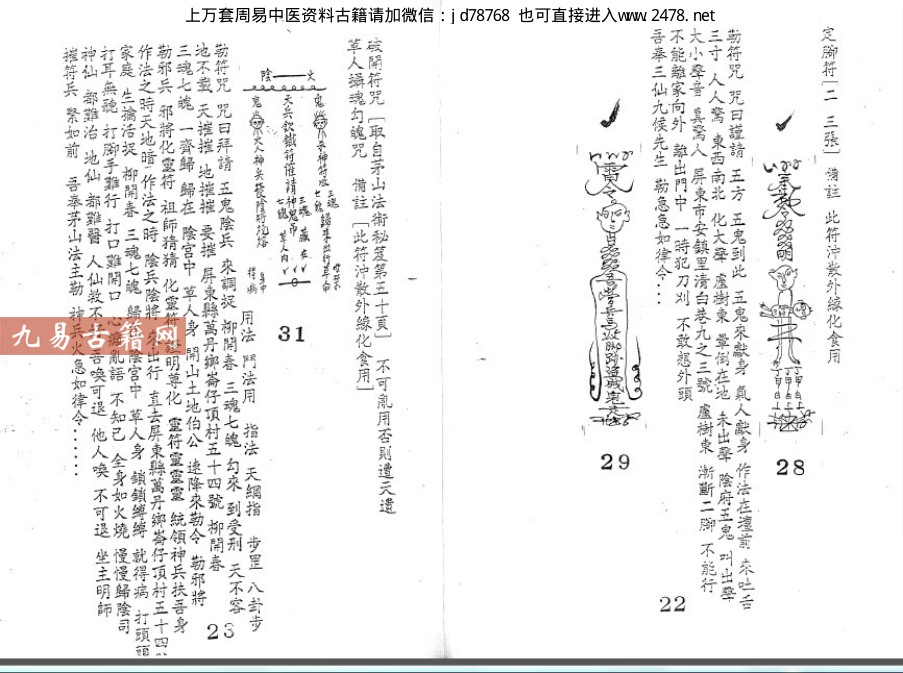 上万套周易中医资料古籍请加微信：jd78768 也可直接进入www.2478.net
定脚符［二 三張］ 備註 此符沖散外緣化食用
28
勒符咒 咒曰謹請 五方 五鬼到此 五鬼來獻身 氣人獻身 作法在壇前 來吐舌
三寸 人人驚 東西南北 化大聲 盧樹東 暈倒在地 未出聲 陰府五鬼 叫出聲
大小聲音 真驚人 屏東市安鎮里清白巷九之三號 盧樹東 漸斷二脚 不能行
不能離家向外 離出門中 一時犯刀刈 不敢想外頭
吾奉三仙九候先生 勒急急如律令···
29
22
破開符咒［取自茅山法術秘笈第五十頁］ 不可亂用否則遭天遣
草人攝魂勾魄咒 備註［此符沖散外緣化食用］
31
用法 鬥法用 指法 天綱指 步罡 八卦步
勒符咒 咒曰拜請 五鬼陰兵 來調捉 柳開春 三魂七魄 勾來 到受刑 天不容
地不載 天摧摧 地摧摧 要摧 屏東縣萬丹鄉崙仔頂村五十四號 柳開春
三魂七魄 一齊歸 歸在 陰宮中 草人身 開山土地伯公 速降來勒令 勒邪將
勒邪兵 邪將化靈符 祖師猜猜 化靈符 證明尊化 靈符靈靈靈 統領神兵扶吾身
作法之時天地暗 作法之時 陰兵陰將 來出行 直去屏東縣萬丹鄉崙仔頂村五十四
家庭 生擒活捉 柳開春 三魂七魄 歸 陰宮中 草人身 鎖鎖縛縛 就得病 打頭頭
打耳無聽 打脚手難行 打口難開口 心 亂語 不知己 全身如火燒 慢慢歸陰司
神仙 都難治 地仙 都難醫 人仙救不 吾喚可退 他人喚 不可退 坐主明師
摧符兵 緊如前 吾奉茅山法主勒 神兵火急如律令·····
23
九易古籍网